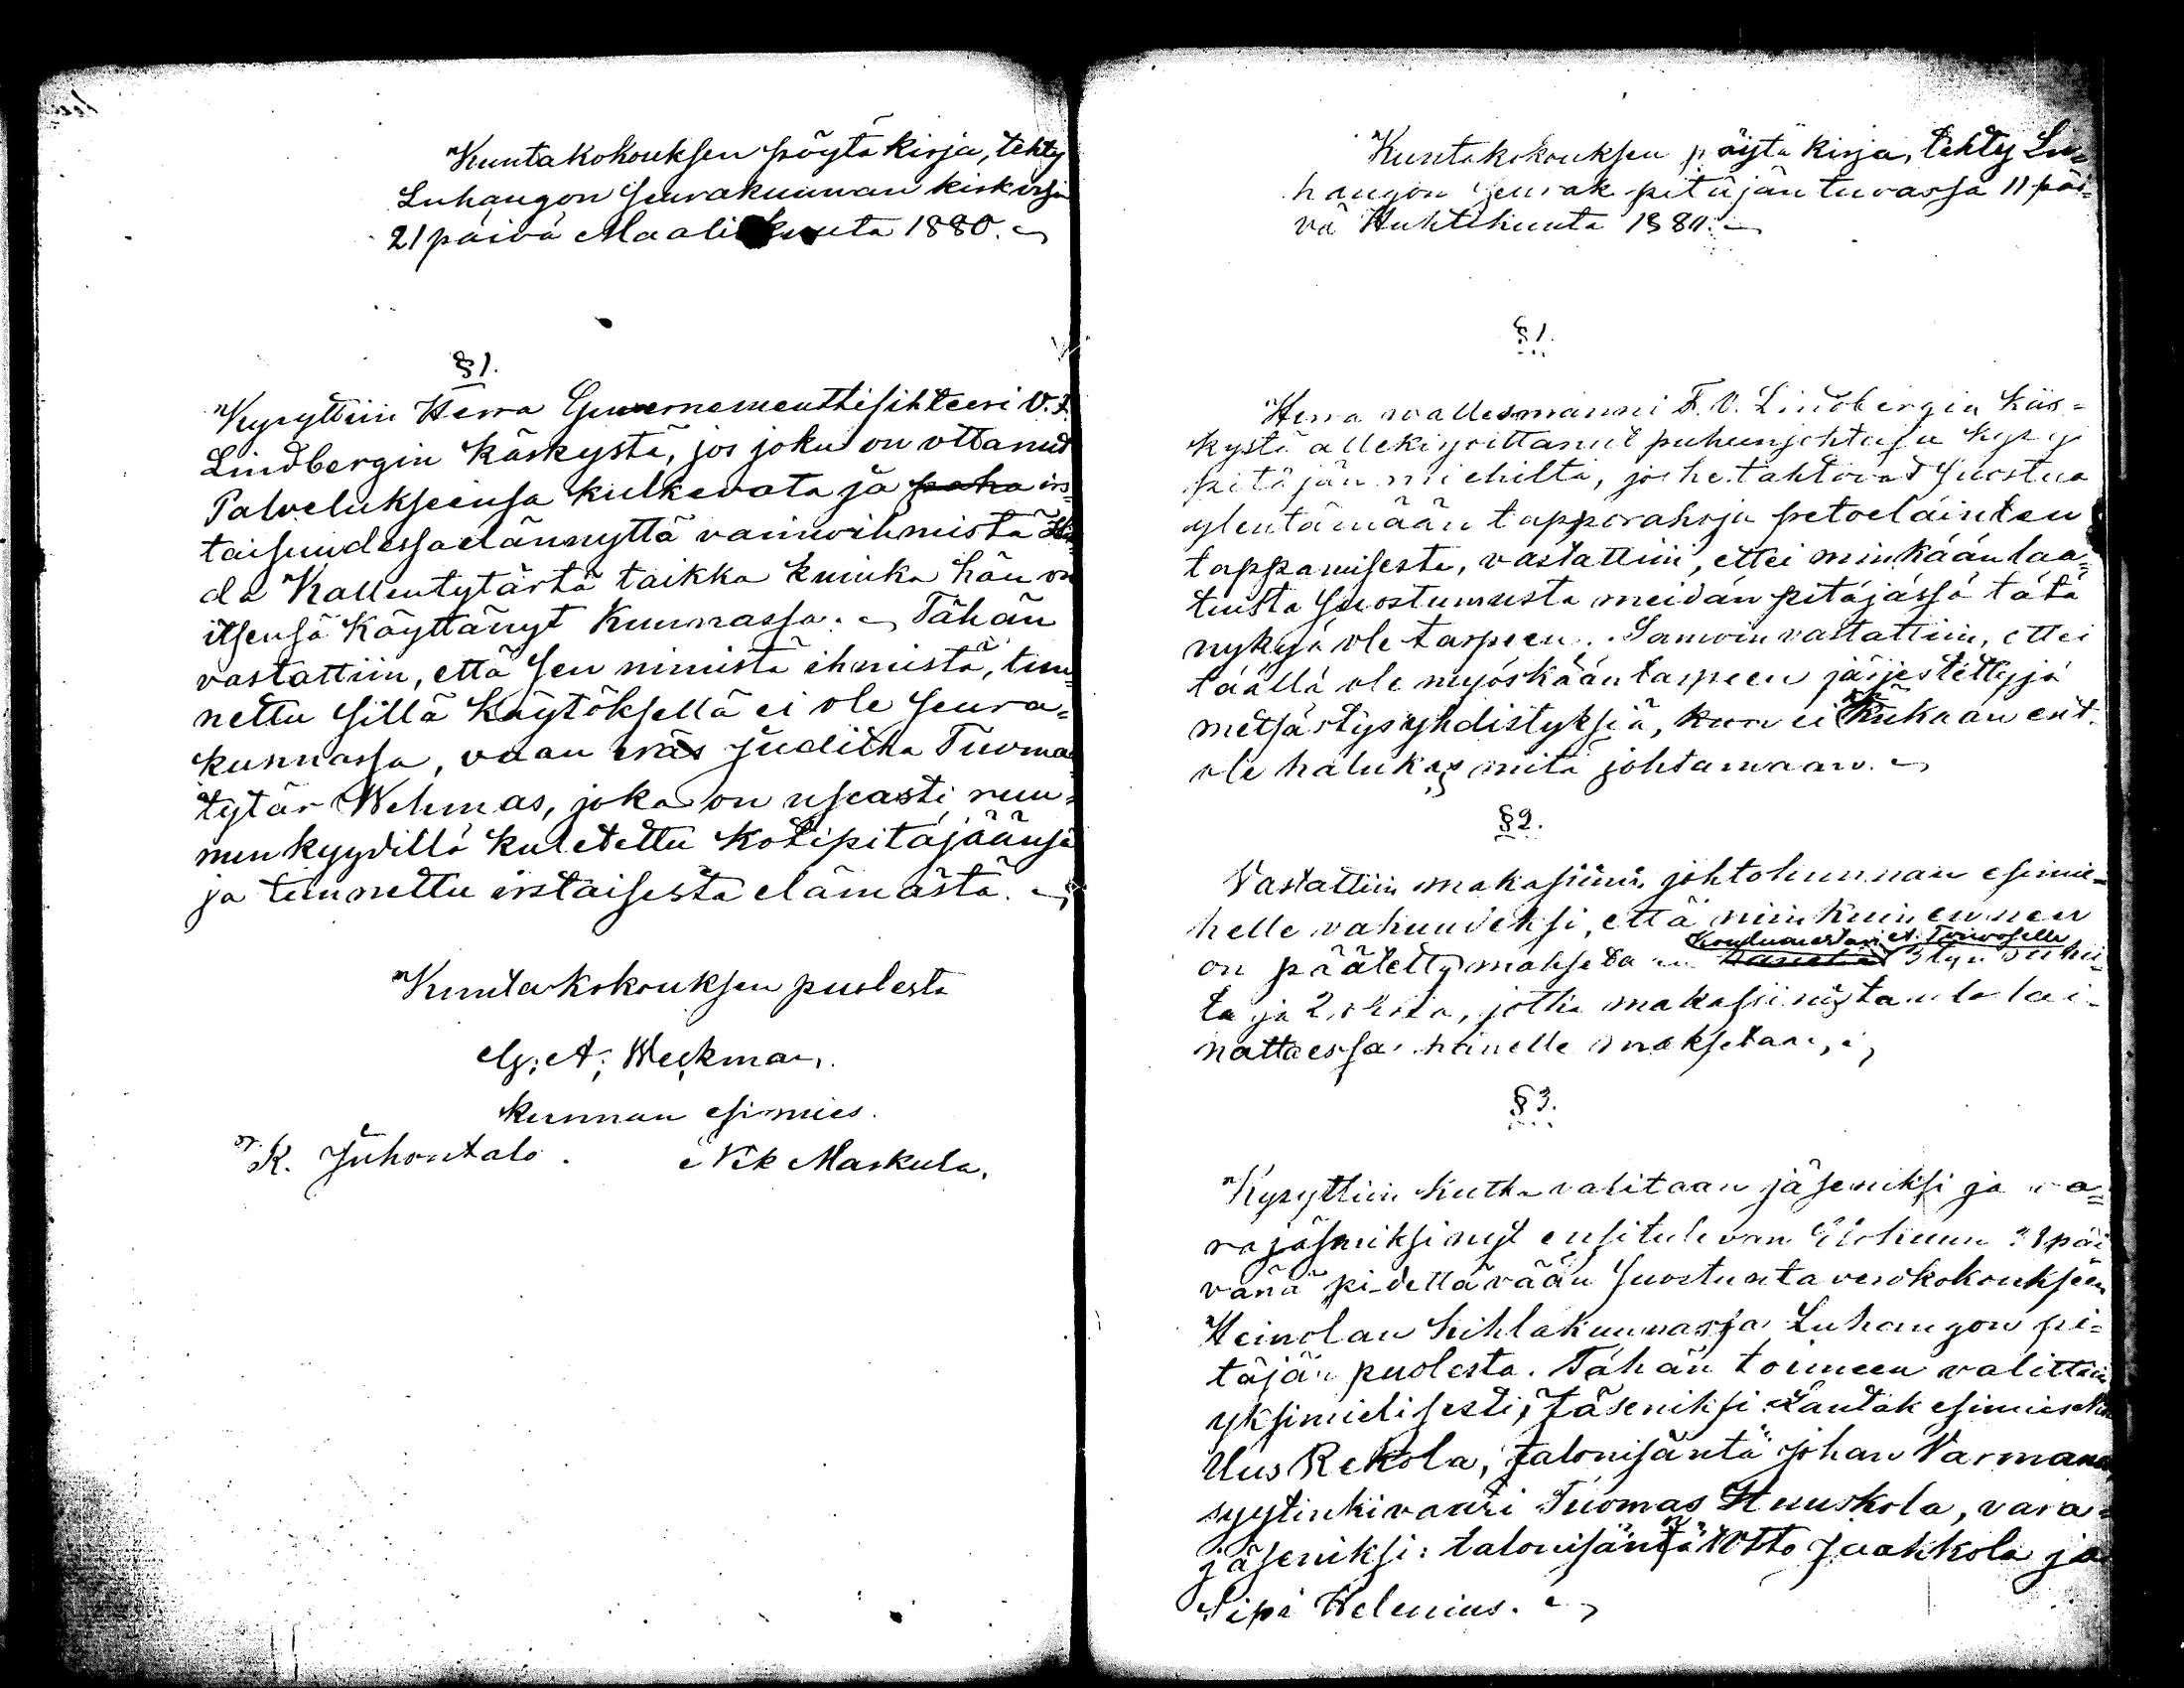 Kuntakokouksen pöytäkirja, tehty
Luhangon seurakunnan kirkossa
21 päivä Maaliskuuta 1880.
§ 1.
Kysyttiin Herra Guvernementtisihteeri V. F.
Lindbergin käskystä, jos joku on ottanut
Palvelukseensa kulkevata ja paha irs=
taisuudessa elännyttä vaimoihmistä Hil=
da Kallentytärtä taikka kuinka hän on
itsensä käyttänyt kunnassa. Tähän
vastattiin, että sen nimistä ihmistä, tun=
nettu sillä käytöksellä ei ole seura=
kunnassa, vaan eräs Juditha Tuomaan
tytär Wehmas, joka on useasti ruu=
nun kyydillä kuletettu kotipitäjäänsä
ja tunnettu irstaisesta elämästä.
Kuntakokouksen puolesta
G. A. Weckman.
kunnan esimies.
K. Juhontalo. Nik Markula.
Kuntakokouksen pöytäkirja, tehty Lu=
hangon seurak pitäjän tuvassa 11 päi=
vä Huhtikuuta 1880.
§ 1.
Herra vallesmanni F. V. Lindbergin käs=
kystä allekirjoittanut puheenjohtaja kysy
pitäjän miehiltä, jos he tahtovat suostua
ylentämään tapporahoja petoeläinten
tappamisesta, vastattiin, ettei minkäänlaa=
tuista suostumusta meidän pitäjässä tätä
nykyä ole tarpeen. Samoin vastattiin, ettei
täällä ole myöskään tarpeen järjestettyjä
metsästysyhdistyksiä, kun ei kukaan ent.
ole halukas niitä johtamaan.
§ 2.
Vastattiin makasiinin johtokunnan esimie=
helle vakuudeksi, että niinkuin ennen
on päätetty maksetaan Koulumestari A. Toivoselle 3 tyn rukii=
ta ja 2 ohria, jotka makasiinista ulos lai=
nattaessa hänelle maksetaan.
§ 3.
Kysyttiin kutka valitaan jäseniksi ja va=
rajäseniksi nyt ensitulevan Elokuun päi=
vänä pidettävään suostuntaverokokoukseen
Heinolan kihlakunnassa Luhangon pi=
täjän puolesta. Tähän toimeen valittiin
yksimielisesti, Jäseniksi: Lautak esimies Nik
Uus Rekola, talonisäntä Johan Varmana
syytinkivaari Tuomas Huuskola, vara=
jäseniksi: talonisäntä Otto Jaakkola ja
Sipi Helenius.